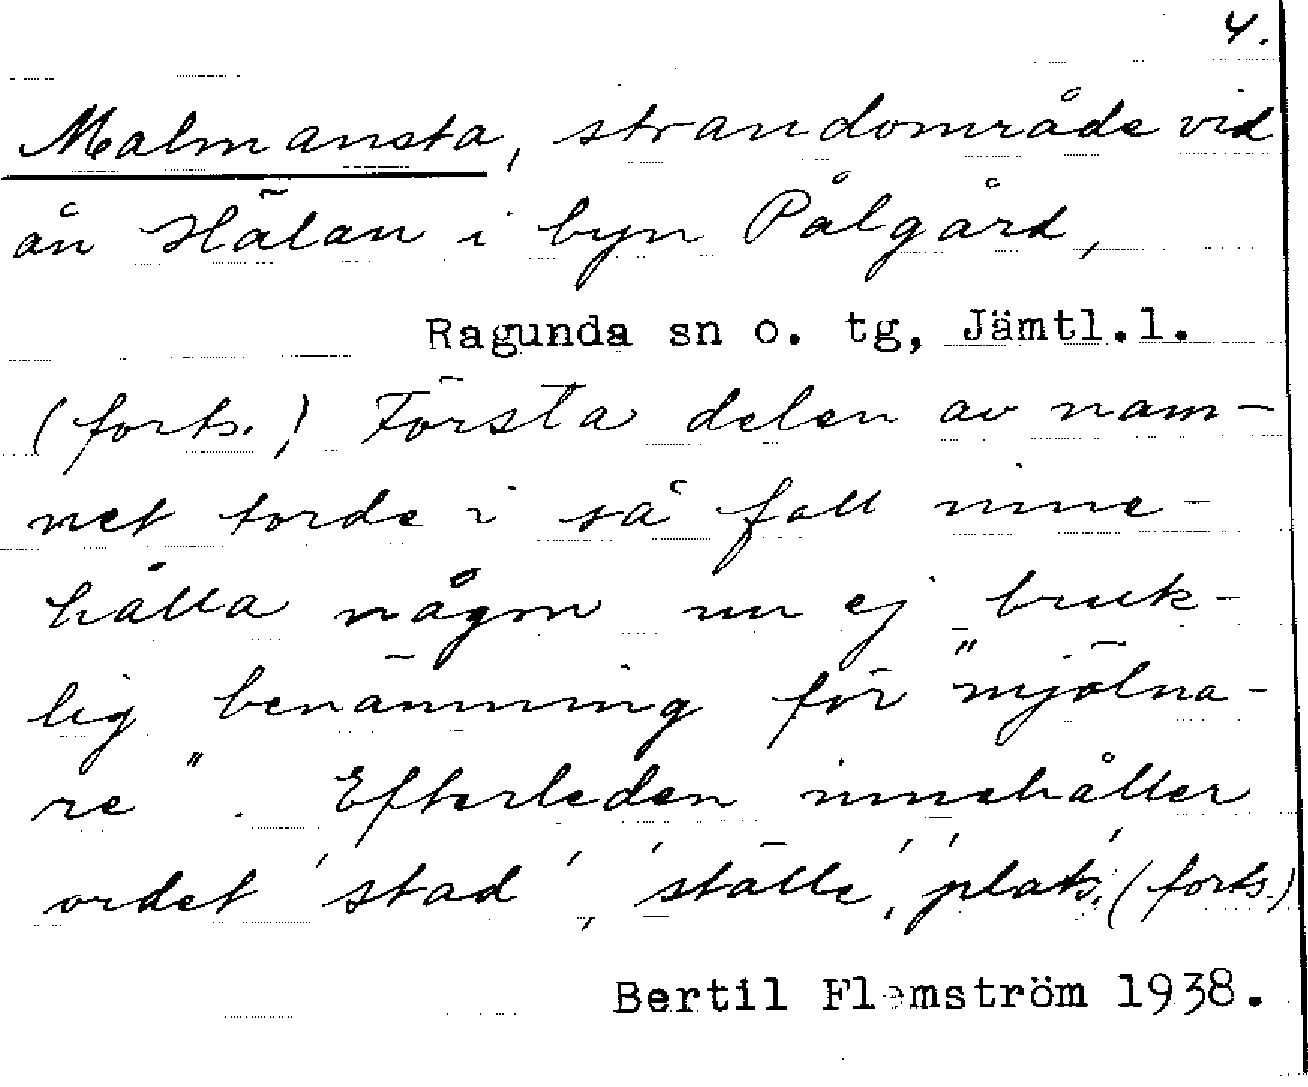 4.
Malmansta, strandområde vid
ån Hälan i byn Pålgård,
Ragunda sn o. tg, Jämtl.l.
(forts.) Första delen av nam-
net torde i så fall inne-
hålla någon nu ej bruk-
lig benämning för "mjölna-
re". Efterleden innehåller
ordet 'stad', 'ställe', 'plats'. (forts.)
Bertil Flemström 1938.